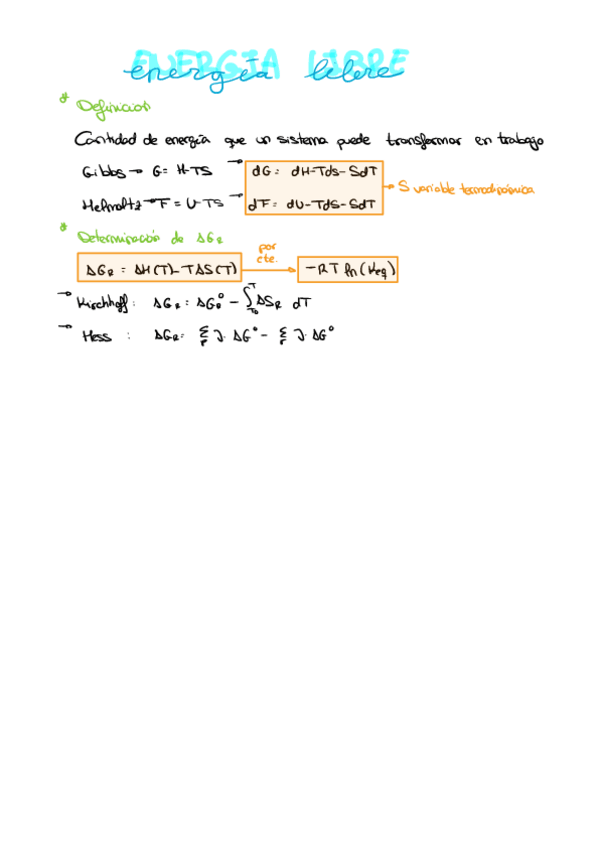 ENERGIA LIBRE
energía libre
* Definición
Cantidad de energía que un sistema puede transformar en trabajo
Gibbs → G = H-TS → dG = dH-Tds-SdT
→ S variable termodinámica
Helmoltz → F = U-TS → dF = dU-Tds-SdT
* Determinación de ΔGR
ΔGR = ΔH(T)-TΔS(T) por cte. → -RT ln(Keq)
→ Kirchhoff: ΔGR = ΔG°R - ∫T0T ΔSR dT
→ Hess : ΔGR = Σp ν · ΔG° - Σr ν · ΔG°